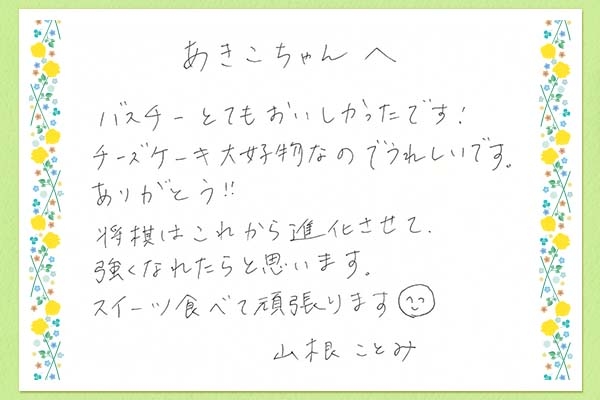 あきこちゃんへ
バスチーとてもおいしかったです!
チーズケーキ大好物なのでうれしいです。
ありがとう!!
将棋はこれから進化させて、
強くなれたらと思います。
スイーツ食べて頑張ります
山根ことみ